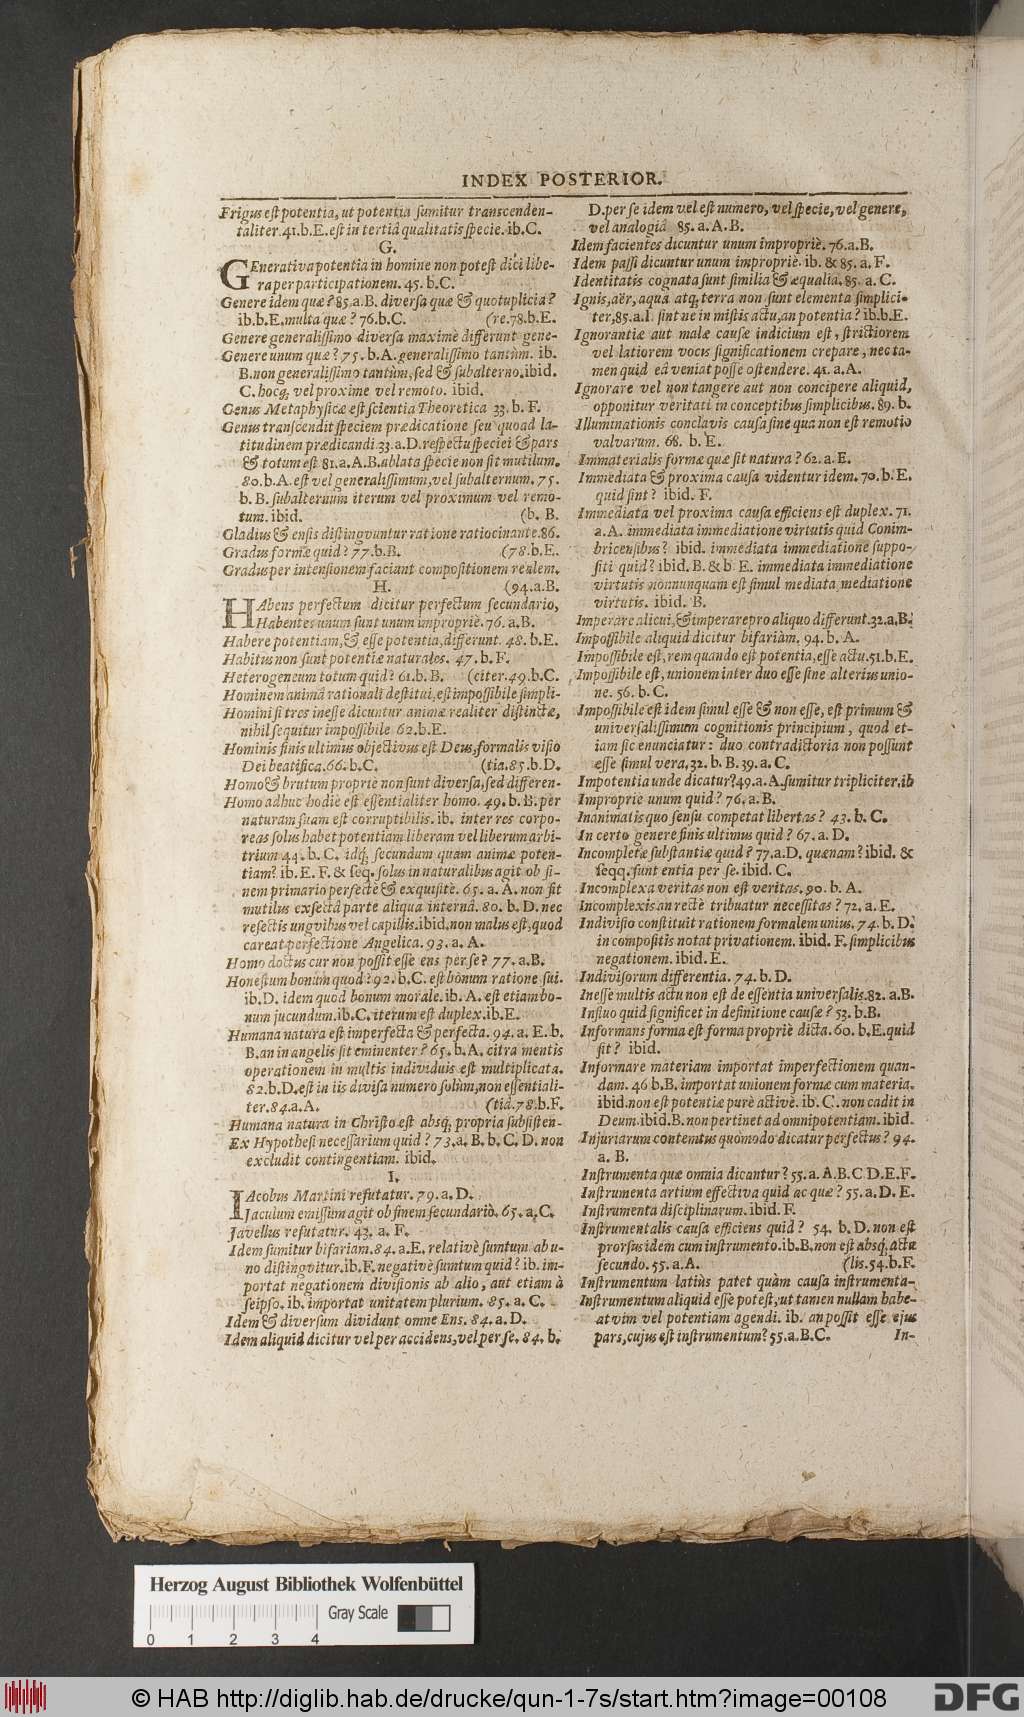 INDEX POSTERIOR.
Frigus est potentia, ut potentia sumitur transcenden-
taliter. 41. b. E. est in tertiâ qualitatis specie. ib. C.
G.
GEnerativa potentia in homine non potest dici libe-
ra per participationem. 45. b. C.
Genere idem quæ? 85. a. B. diversa quæ & quotuplicia?
ib. b. E. multa quæ? 76. b. C. (re. 78. b. E.
Genere generalissimo diversa maximè differunt gene-
Genere unum quæ? 75. b. A. generalissimo tantùm. ib.
B. non generalissimo tantùm, sed & subalterno. ibid.
C. hocq; vel proxime vel remoto. ibid.
Genus Metaphysicæ est scientia Theoretica 33. b. F.
Genus transcendit speciem prædicatione seu quoad la-
titudinem prædicandi 33. a. D. respectu speciei & pars
& totum est 81. a. A. B. ablata specie non fit mutilum.
80. b. A. est vel generalissimum, vel subalternum. 75.
b. B. subalternum iterum vel proximum vel remo-
tum. ibid. (b. B.
Gladius & ensis distingvuntur ratione ratiocinante. 86.
Gradus formæ quid? 77. b. B. (78. b. E.
Gradus per intensionem faciant compositionem realem.
H. (94. a. B.
HAbens perfectum dicitur perfectum secundario,
Habentes unum sunt unum impropriè. 76. a. B.
Habere potentiam, & esse potentia, differunt. 48. b. E.
Habitus non sunt potentiæ naturales. 47. b. F.
Heterogeneum totum quid? 61. b. B. (citer. 49. b. C.
Hominem animâ rationali destitui, est impossibile simpli-
Homini si tres inesse dicuntur animæ realiter distinctæ,
nihil sequitur impossibile 62. b. E.
Hominis finis ultimus objectivus est Deus, formalis visio
Dei beatifica. 66. b. C. (tia. 85. b. D.
Homo & brutum propriè non sunt diversa, sed differen-
Homo adhuc hodie est essentialiter homo. 49. b. B. per
naturam suam est corruptibilis. ib. inter res corpo-
reas solus habet potentiam liberam vel liberum arbi-
trium 44. b. C. idq; secundum quam animæ poten-
tiam? ib. E. F. & seq. solus in naturalibus agit ob fi-
nem primario perfectè & exquisitè. 65. a. A. non fit
mutilus exsectâ parte aliqua internâ. 80. b. D. nec
resectis ungvibus vel capillis. ibid. non malus est, quod
careat perfectione Angelica. 93. a. A.
Homo doctus cur non possit esse ens per se? 77. a. B.
Honestum bonum quod? 92. b. C. est bonum ratione sui.
ib. D. idem quod bonum morale. ib. A. est etiam bo-
num jucundum. ib. C. iterum est duplex. ib. E.
Humana natura est imperfecta & perfecta. 94. a. E. b.
B. an in angelis sit eminenter? 65. b. A. citra mentis
operationem in multis individuis est multiplicata.
82. b. D. est in iis divisa numero solùm, non essentiali-
ter. 84. a. A. (tia. 78. b. F.
Humana natura in Christo est absq; propria subsisten-
Ex Hypothesi necessarium quid? 73. a. B. b. C. D. non
excludit contingentiam. ibid.
I.
IAcobus Martini refutatur. 79. a. D.
Jaculum emissum agit ob finem secundariò. 65. a. C.
Javellus refutatur. 43. a. F.
Idem sumitur bifariam. 84. a. E. relativè sumtum ab u-
no distingvitur. ib. F. negativè sumtum quid? ib. im-
portat negationem divisionis ab alio, aut etiam à
seipso. ib. importat unitatem plurium. 85. a. C.
Idem & diversum dividunt omne Ens. 84. a. D.
Idem aliquid dicitur vel per accidens, vel per se. 84. b.
D. per se idem vel est numero, vel specie, vel genere,
vel analogiâ 85. a. A. B.
Idem facientes dicuntur unum impropriè. 76. a. B.
Idem passi dicuntur unum impropriè. ib. & 85. a. F.
Identitatis cognata sunt similia & æqualia. 85. a. C.
Ignis, aër, aqua atq; terra non sunt elementa simplici-
ter, 85. a. l. sint ne in mistis actu, an potentia? ib. b. E.
Ignorantiæ aut malæ causæ indicium est, strictiorem
vel latiorem vocis significationem crepare, nec ta-
men quid eâ veniat posse ostendere. 41. a. A.
Ignorare vel non tangere aut non concipere aliquid,
opponitur veritati in conceptibus simplicibus. 89. b.
Illuminationis conclavis causa sine qua non est remotio
valvarum. 68. b. E.
Immaterialis formæ quæ sit natura? 62. a. E.
Immediata & proxima causa videntur idem. 70. b. E.
quid sint? ibid. F.
Immediata vel proxima causa efficiens est duplex. 71.
a. A. immediata immediatione virtutis quid Conim-
bricensibus? ibid. immediata immediatione suppo-
siti quid? ibid. B. & b E. immediata immediatione
virtutis nonnunquam est simul mediata mediatione
virtutis. ibid. B.
Imperare alicui, & imperare pro aliquo differunt. 32. a. B.
Impossibile aliquid dicitur bifariàm. 94. b. A.
Impossibile est, rem quando est potentia, esse actu. 51. b. E.
Impossibile est, unionem inter duo esse sine alterius unio-
ne. 56. b. C.
Impossibile est idem simul esse & non esse, est primum &
universalissimum cognitionis principium, quod et-
iam sic enunciatur: duo contradictoria non possunt
esse simul vera, 32. b. B. 39. a. C.
Impotentia unde dicatur? 49. a. A. sumitur tripliciter. ib
Impropriè unum quid? 76. a. B.
Inanimatis quo sensu competat libertas? 43. b. C.
In certo genere finis ultimus quid? 67. a. D.
Incompletæ substantiæ quid? 77. a. D. quænam? ibid. &
seqq. sunt entia per se. ibid. C.
Incomplexa veritas non est veritas. 90. b. A.
Incomplexis an rectè tribuatur necessitas? 72. a. E.
Indivisio constituit rationem formalem unius. 74. b. D.
in compositis notat privationem. ibid. F. simplicibus
negationem. ibid. E.
Indivisorum differentia. 74. b. D.
Inesse multis actu non est de essentia universalis. 82. a. B.
Influo quid significet in definitione causæ? 53. b. B.
Informans forma est forma propriè dicta. 60. b. E. quid
sit? ibid.
Informare materiam importat imperfectionem quan-
dam. 46 b. B. importat unionem formæ cum materia.
ibid. non est potentiæ purè activè. ib. C. non cadit in
Deum. ibid. B. non pertinet ad omnipotentiam. ibid.
Injuriarum contemtus quomodo dicatur perfectus? 94.
a. B.
Instrumenta quæ omnia dicantur? 55. a. A. B. C D. E. F.
Instrumenta artium effectiva quid ac quæ? 55. a. D. E.
Instrumenta disciplinarum. ibid. F.
Instrumentalis causa efficiens quid? 54. b. D. non est
prorsus idem cum instrumento. ib. B. non est absq; actu
secundo. 55. a. A. (lis. 54. b. F.
Instrumentum latiùs patet quàm causa instrumenta-
Instrumentum aliquid esse potest, ut tamen nullam habe-
at vim vel potentiam agendi. ib. an possit esse ejus
pars, cujus est instrumentum? 55. a. B. C. In-
Herzog August Bibliothek Wolfenbüttel
Gray Scale
0 1 2 3 4
© HAB http://diglib.hab.de/drucke/qun-1-7s/start.htm?image=00108
DFG